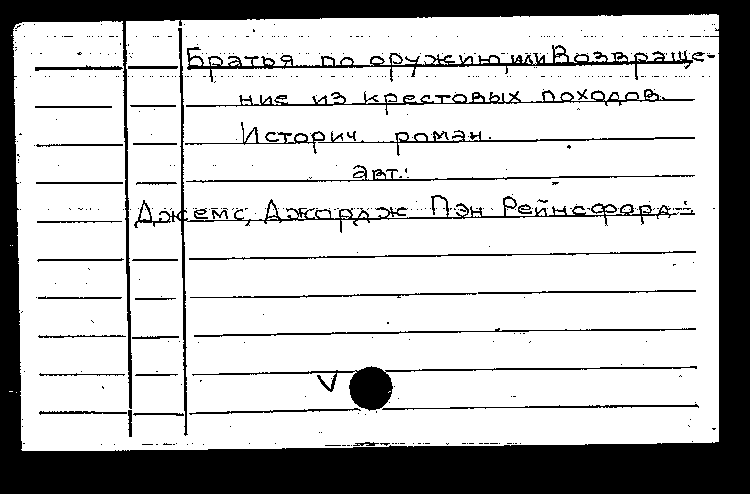 Братья по оружию, или Возвраще-
ние из крестовых походов.
Историч. роман.
авт.:
Джемс, Джордж Пэн Рейнсфорд.-
V